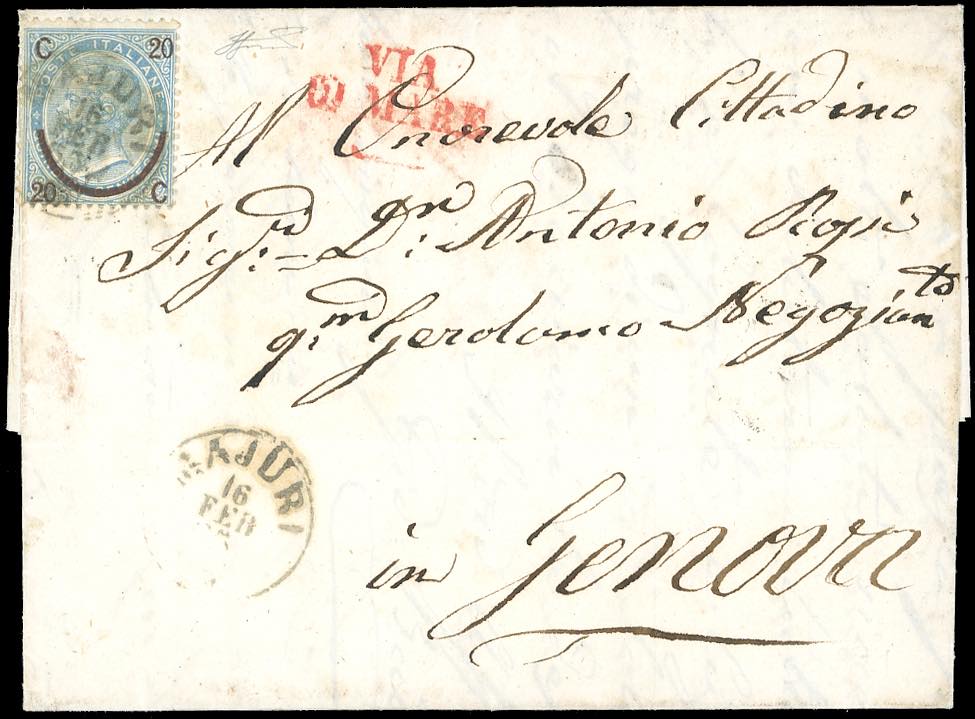 C 20
POSTE ITALIANE
20 C
MAJURI
16
FEB
VIA
DI MARE
Al Onorevole Cittadino
Sig.ri D.r Antonio
q.m Gerolamo Negozian.te
MAJURI
16
FEB
in Genova